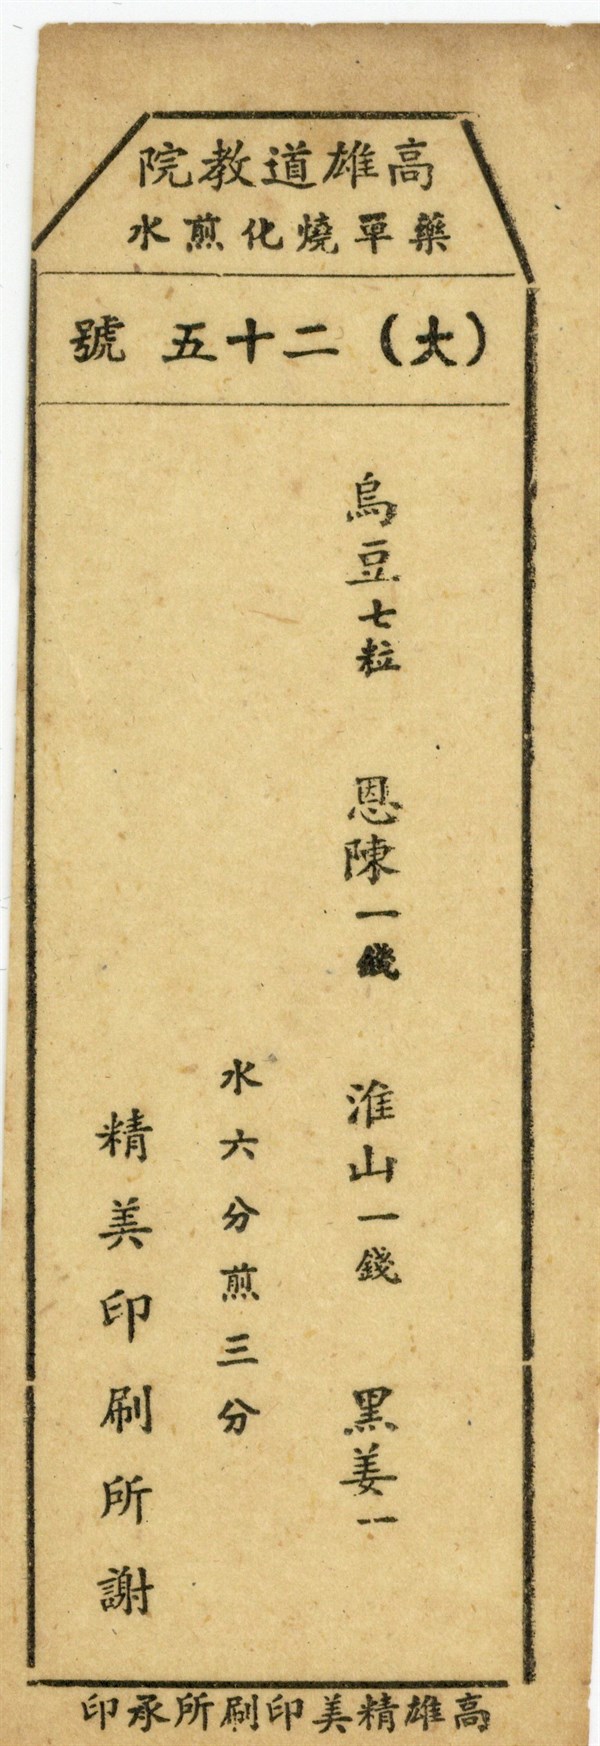 高雄道教院
藥單燒化煎水
(大)二十五號
烏豆七粒 恩陳一錢 淮山一錢 黑姜一
水六分煎三分
精美印刷所謝
高雄精美印刷所承印